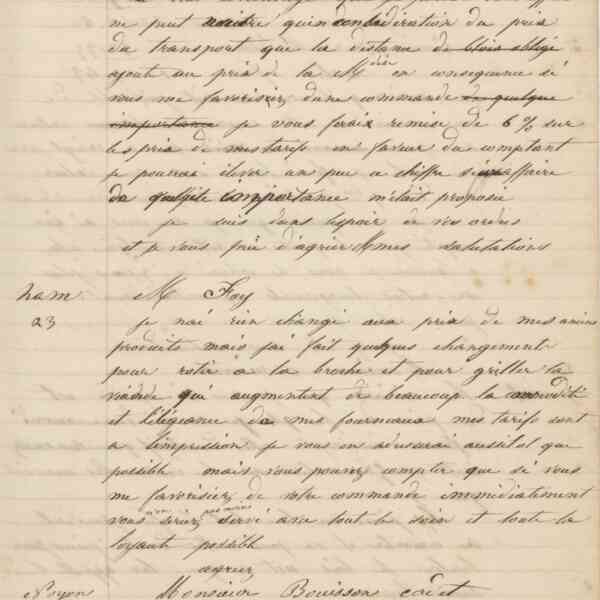 ne peut naitre qu'en considération du prix
du transport que la distance de blois obligé
ajouté au prix de la Mdise en consequence si
vous me favorisiez d'une commande de quelque
importance je vous ferais remise de 6 % sur
les prix de mes tarifs en faveur du comptant
je pourrai élever un peu ce chiffre si une affaire
de quelq'le importance m'était proposée
je suis dans l'espoir de vos ordres
et je vous prie d'agréer mes salutations
ham M Foy
23
je n'ai rien changé aux prix de mes anciens
produits mais j'ai fait quelques changements
pour rotir à la broche et pour griller la
viande qui augmentent de beaucoup la comodité
et l'élégance de mes fourneaux mes tarifs sont
a l'impression je vous en adresserai aussitot que
possible mais vous pouvez compter que si vous
me favorisiez de votre commande immédiatement
vous n'en seriez pas moins servi avec tout le soin et toute la
loyauté possible
agréez
Noyon Monsieur Bouisson cadet